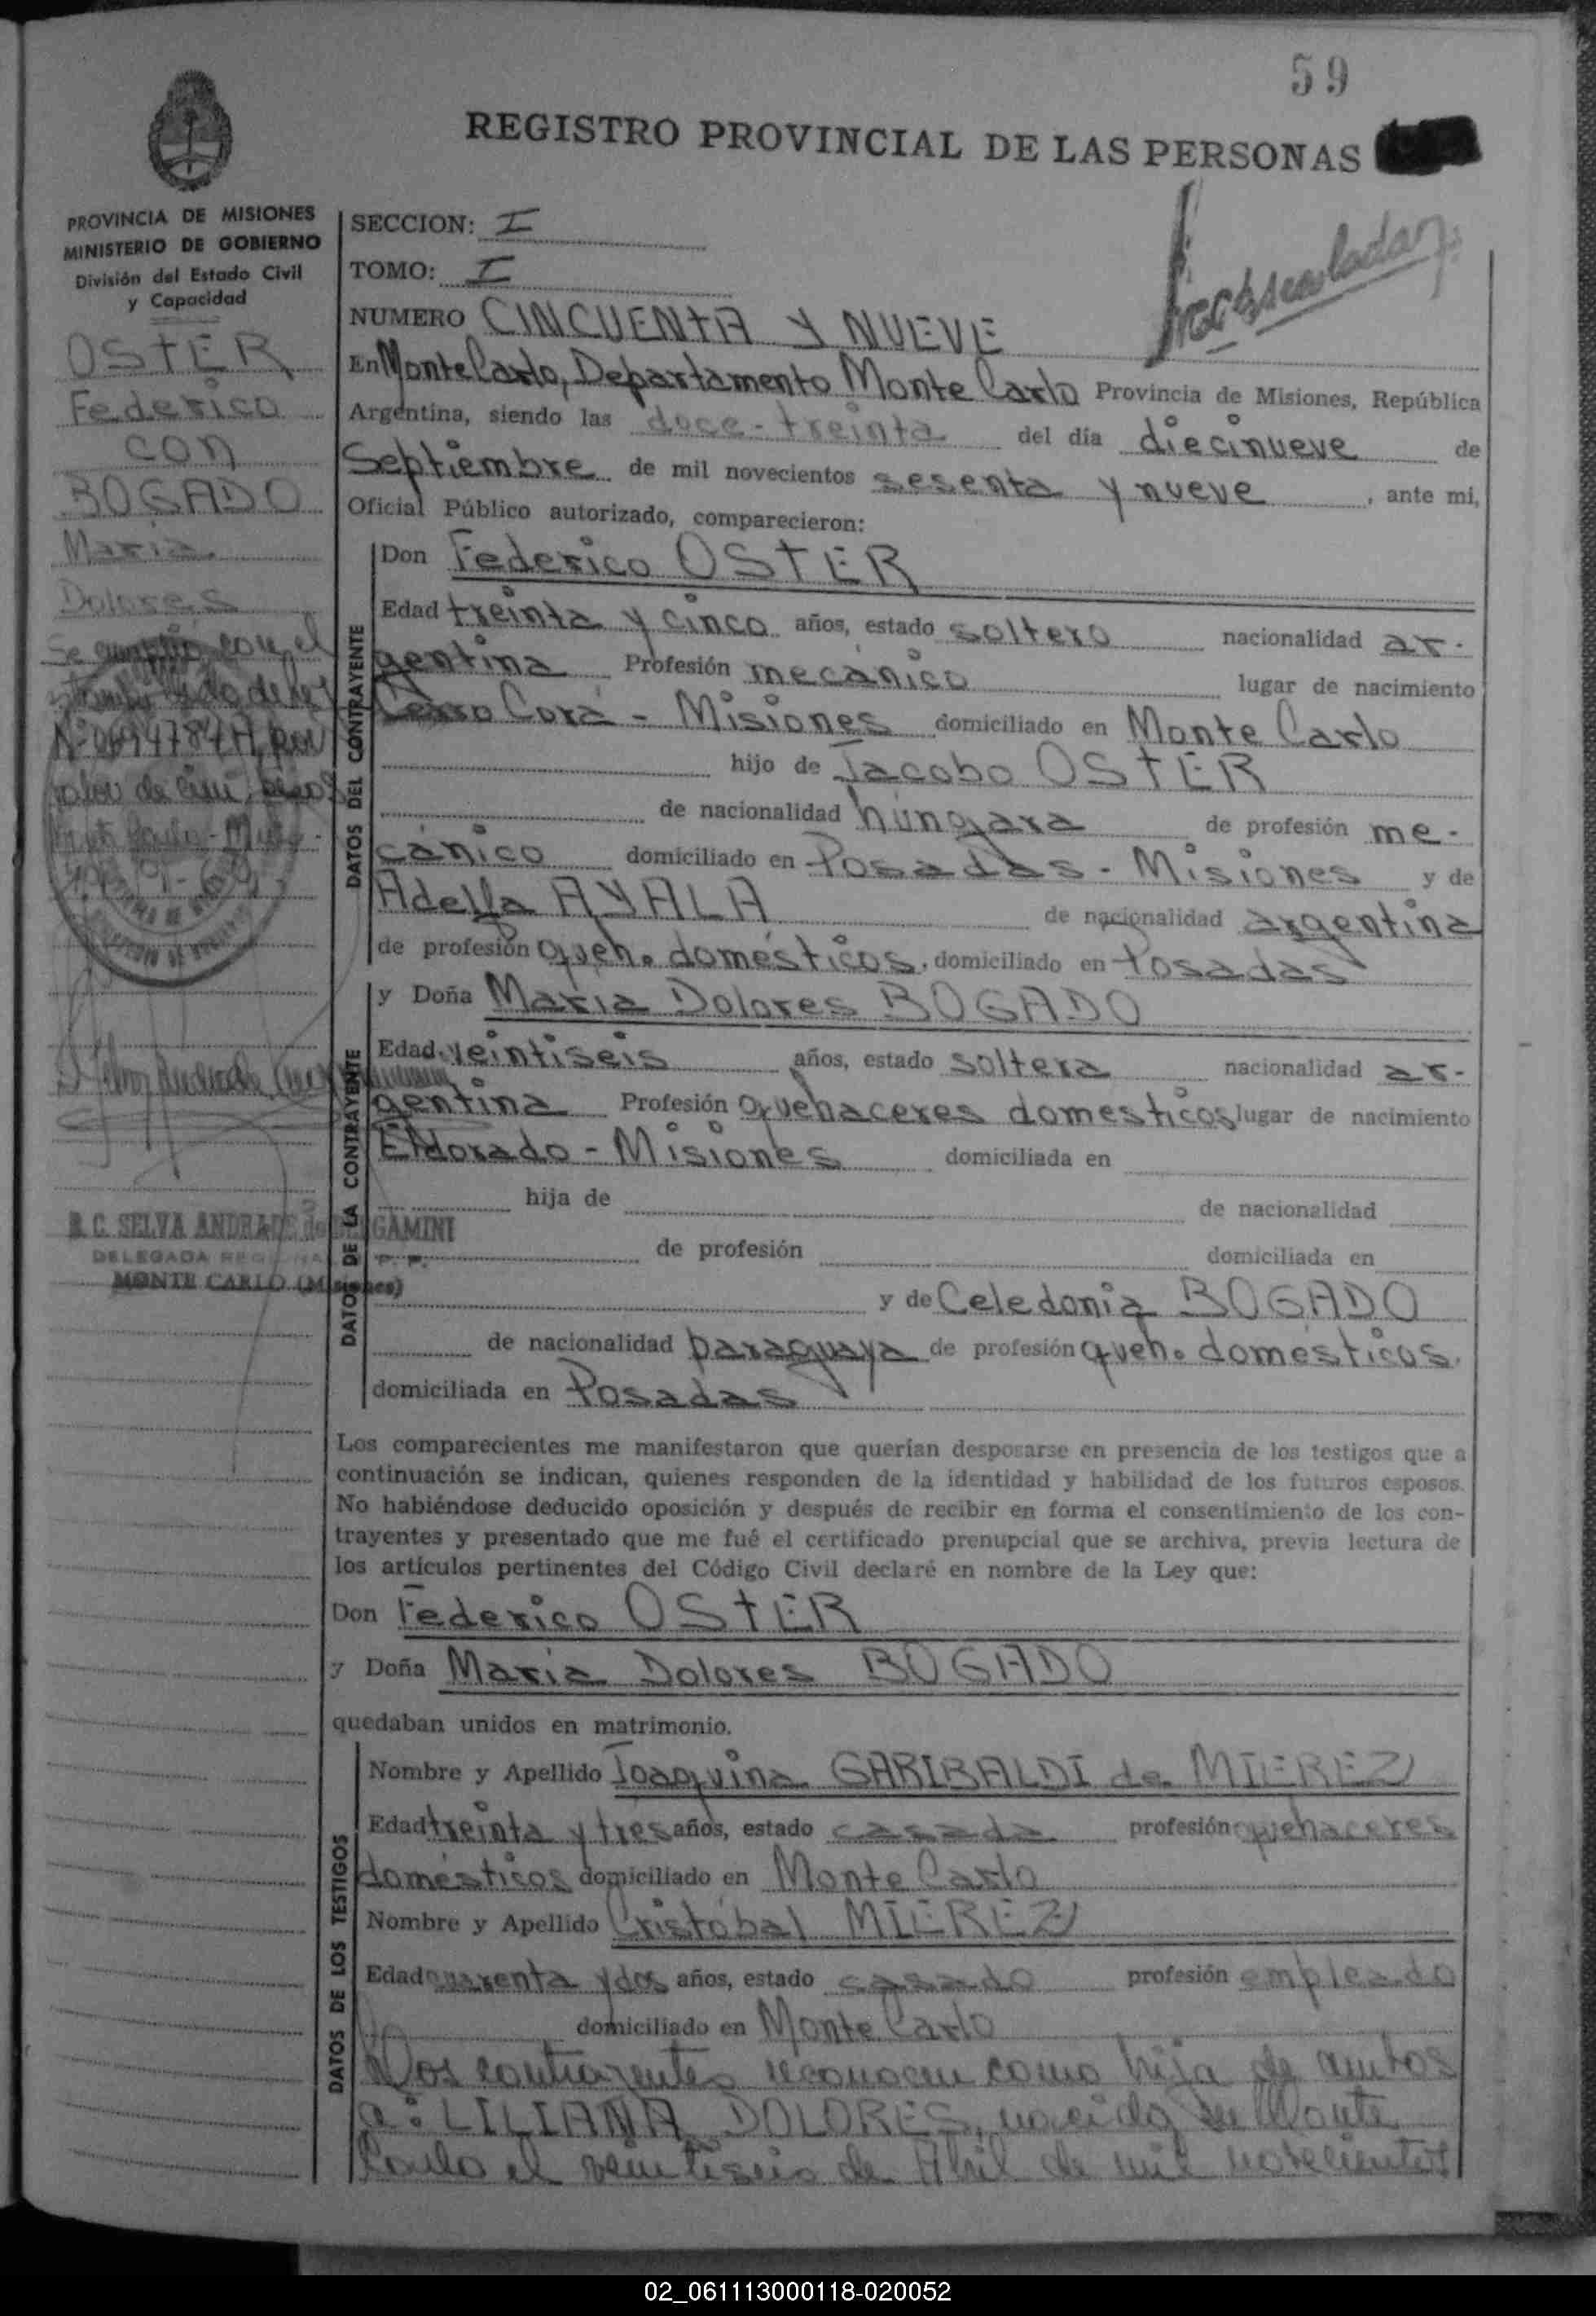 59
REGISTRO PROVINCIAL DE LAS PERSONAS
PROVINCIA DE MISIONES
MINISTERIO DE GOBIERNO
División del Estado Civil
y Capacidad
OSTER
Federico
con
BOGADO
María
Dolores
Se cumplió con el
Nº 0694784 A, por
valor de cien pesos
19-9-69
R. C. SELVA ANDRADE de BERGAMINI
DELEGADA
MONTE CARLO (Misiones)
SECCION: I
TOMO: I
NUMERO CINCUENTA Y NUEVE
En Monte Carlo, Departamento Monte Carlo Provincia de Misiones, República
Argentina, siendo las doce-treinta del día diecinueve de
Septiembre de mil novecientos sesenta y nueve, ante mi,
Oficial Público autorizado, comparecieron:
DATOS DEL CONTRAYENTE
Don Federico OSTER
Edad treinta y cinco años, estado soltero nacionalidad ar-
gentina Profesión mecánico lugar de nacimiento
Cerro Corá - Misiones domiciliado en Monte Carlo
hijo de Jacobo OSTER
de nacionalidad húngara de profesión me-
cánico domiciliado en Posadas - Misiones y de
Adella AYALA de nacionalidad argentina
de profesión queh. domésticos. domiciliado en Posadas
DATOS DE LA CONTRAYENTE
y Doña María Dolores BOGADO
Edad veintiseis años, estado soltera nacionalidad ar-
gentina Profesión quehaceres domésticos lugar de nacimiento
Eldorado - Misiones domiciliada en
hija de de nacionalidad
de profesión domiciliada en
y de Celedonia BOGADO
de nacionalidad paraguaya de profesión queh. domésticos.
domiciliada en Posadas
Los comparecientes me manifestaron que querían desposarse en presencia de los testigos que a
continuación se indican, quienes responden de la identidad y habilidad de los futuros esposos.
No habiéndose deducido oposición y después de recibir en forma el consentimiento de los con-
trayentes y presentado que me fué el certificado prenupcial que se archiva, previa lectura de
los artículos pertinentes del Código Civil declaré en nombre de la Ley que:
Don Federico OSTER
y Doña María Dolores BOGADO
quedaban unidos en matrimonio.
DATOS DE LOS TESTIGOS
Nombre y Apellido Joaquina GARIBALDI de MIEREZ
Edad treinta y tres años, estado casada profesión quehaceres
domésticos domiciliado en Monte Carlo
Nombre y Apellido Cristóbal MIEREZ
Edad cuarenta y dos años, estado casado profesión empleado
domiciliado en Monte Carlo
Los contrayentes reconocen como hija de ambos
a: LILIANA DOLORES, nacida en Monte
Carlo el veintiseis de Abril de mil novecientos
02_061113000118-020052